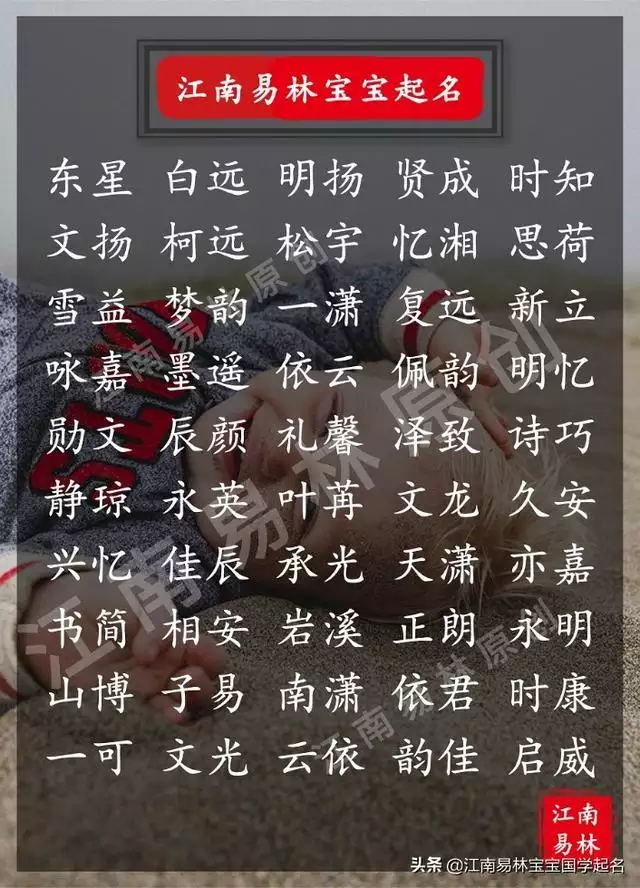 江南易林宝宝起名
东星 白远 明扬 贤成 时知
文扬 柯远 松宇 忆湘 思荷
雪益 梦韵 一潇 复远 新立
咏嘉 墨遥 依云 佩韵 明忆
勋文 辰颜 礼馨 泽致 诗巧
静琼 永英 叶苒 文龙 久安
兴忆 佳辰 承光 天潇 亦嘉
书简 相安 岩溪 正朗 永明
山博 子易 南潇 依君 时康
一可 文光 云依 韵佳 启威
江南易林原创
江南易林原创
江南易林原创
江南
易林
头条 @江南易林宝宝国学起名